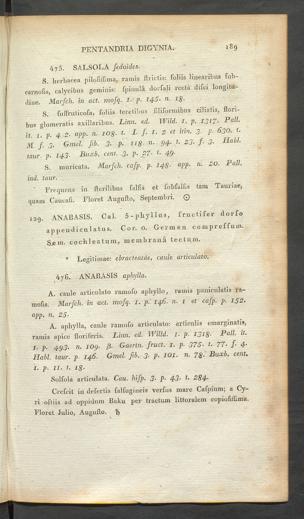 PENTANDRIA DIGYNIA. 189
475. SALSOLA ſedoides.
S. herbacea piloſiſſima, ramis ſtrictis: foliis linearibus ſub-
carnoſis, calycibus geminis: ſpinulâ dorſali rectâ diſci longitu-
dine. Marſch. in act. moſq. 1. p. 145. n. 18.
S. ſuffruticoſa, foliis teretibus filiformibus ciliatis, flori-
bus glomeratis axillaribus. Linn. ed. Wild. 1. p. 1317. Pall.
it. 1. p. 4.2. app. n. 108. t. I. f. 1. 2 et itin. 3. p. 630. t.
M f. 3. Gmel. ſib. 3. p. 118. n. 94. t. 23. f. 3. Habl.
taur. p. 143. Buxb. cent. 3. p. 27. t. 49.
S. muricata. Marſch. caſp. p. 148. app. n. 20. Pall.
ind. taur.
Frequens in ſterilibus ſalſis et ſubſalſis tam Tauriae,
quam Caucaſi. Floret Auguſto, Septembri. ☉
129. ANABASIS. Cal. 5-phyllus, fructifer dorſo
appendiculatus. Cor. 0. Germen compreſſum.
Sem. cochleatum, membranâ tectum.
* Legitimae: ebracteatæ, caule articulato.
476. ANABASIS aphylla.
A. caule articulato ramoſo aphyllo, ramis paniculatis ra-
moſis. Marſch. in act. moſq. 1. p. 146. n. 1 et caſp. p. 152.
app. n. 25.
A. aphylla, caule ramoſo articulato: articulis emarginatis,
ramis apice floriferis. Linn. ed. Willd. 1. p. 1318. Pall. it.
1. p. 493. n. 109. β. Gaertn. fruct. 1. p. 375. t. 77. f. 4.
Habl. taur. p. 146. Gmel ſib. 3. p. 101. n. 78. Buxb. cent.
1. p. 11. t. 18.
Salſola articulata. Cav. hiſp. 3. p. 43. t. 284.
Creſcit in deſertis ſalſugineis verſus mare Caſpium; a Cy-
ri oſtiis ad oppidum Baku per tractum littoralem copioſiſſima.
Floret Julio, Auguſto. ♄